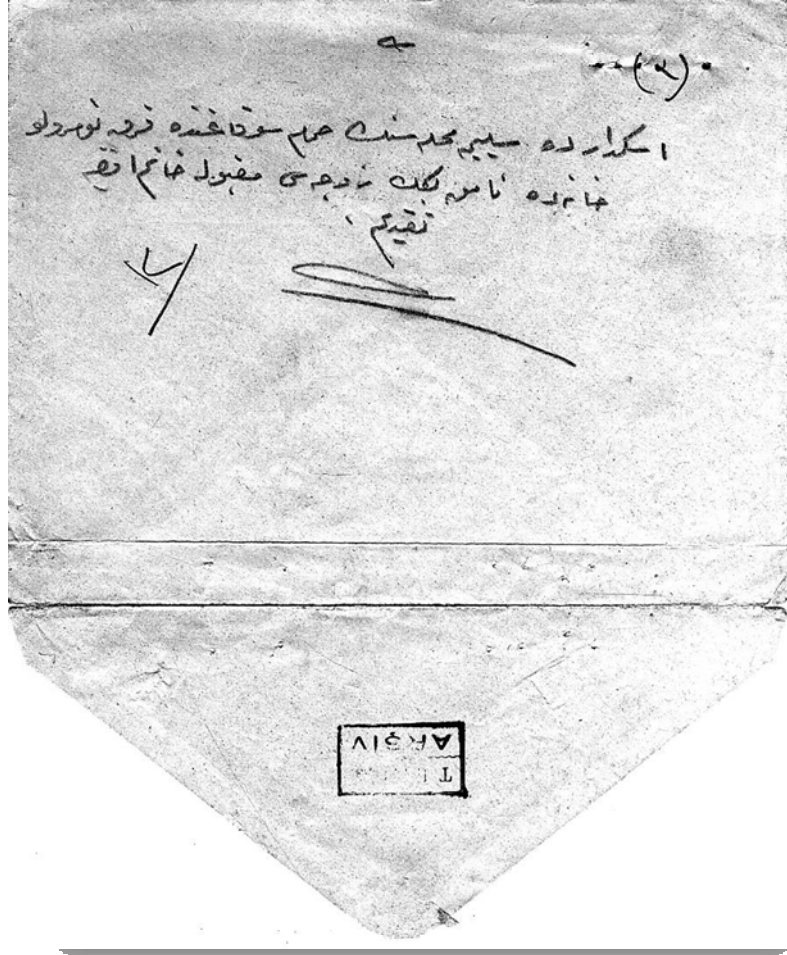 (٢)
اسكدارده سليميه محله‌سنك حمام سوقاغنده قرق نومرولو
خانه‌ده نامق بكك زوجه‌سى مقبوله خانم افندى‌يه
تقديم
ARŞİV